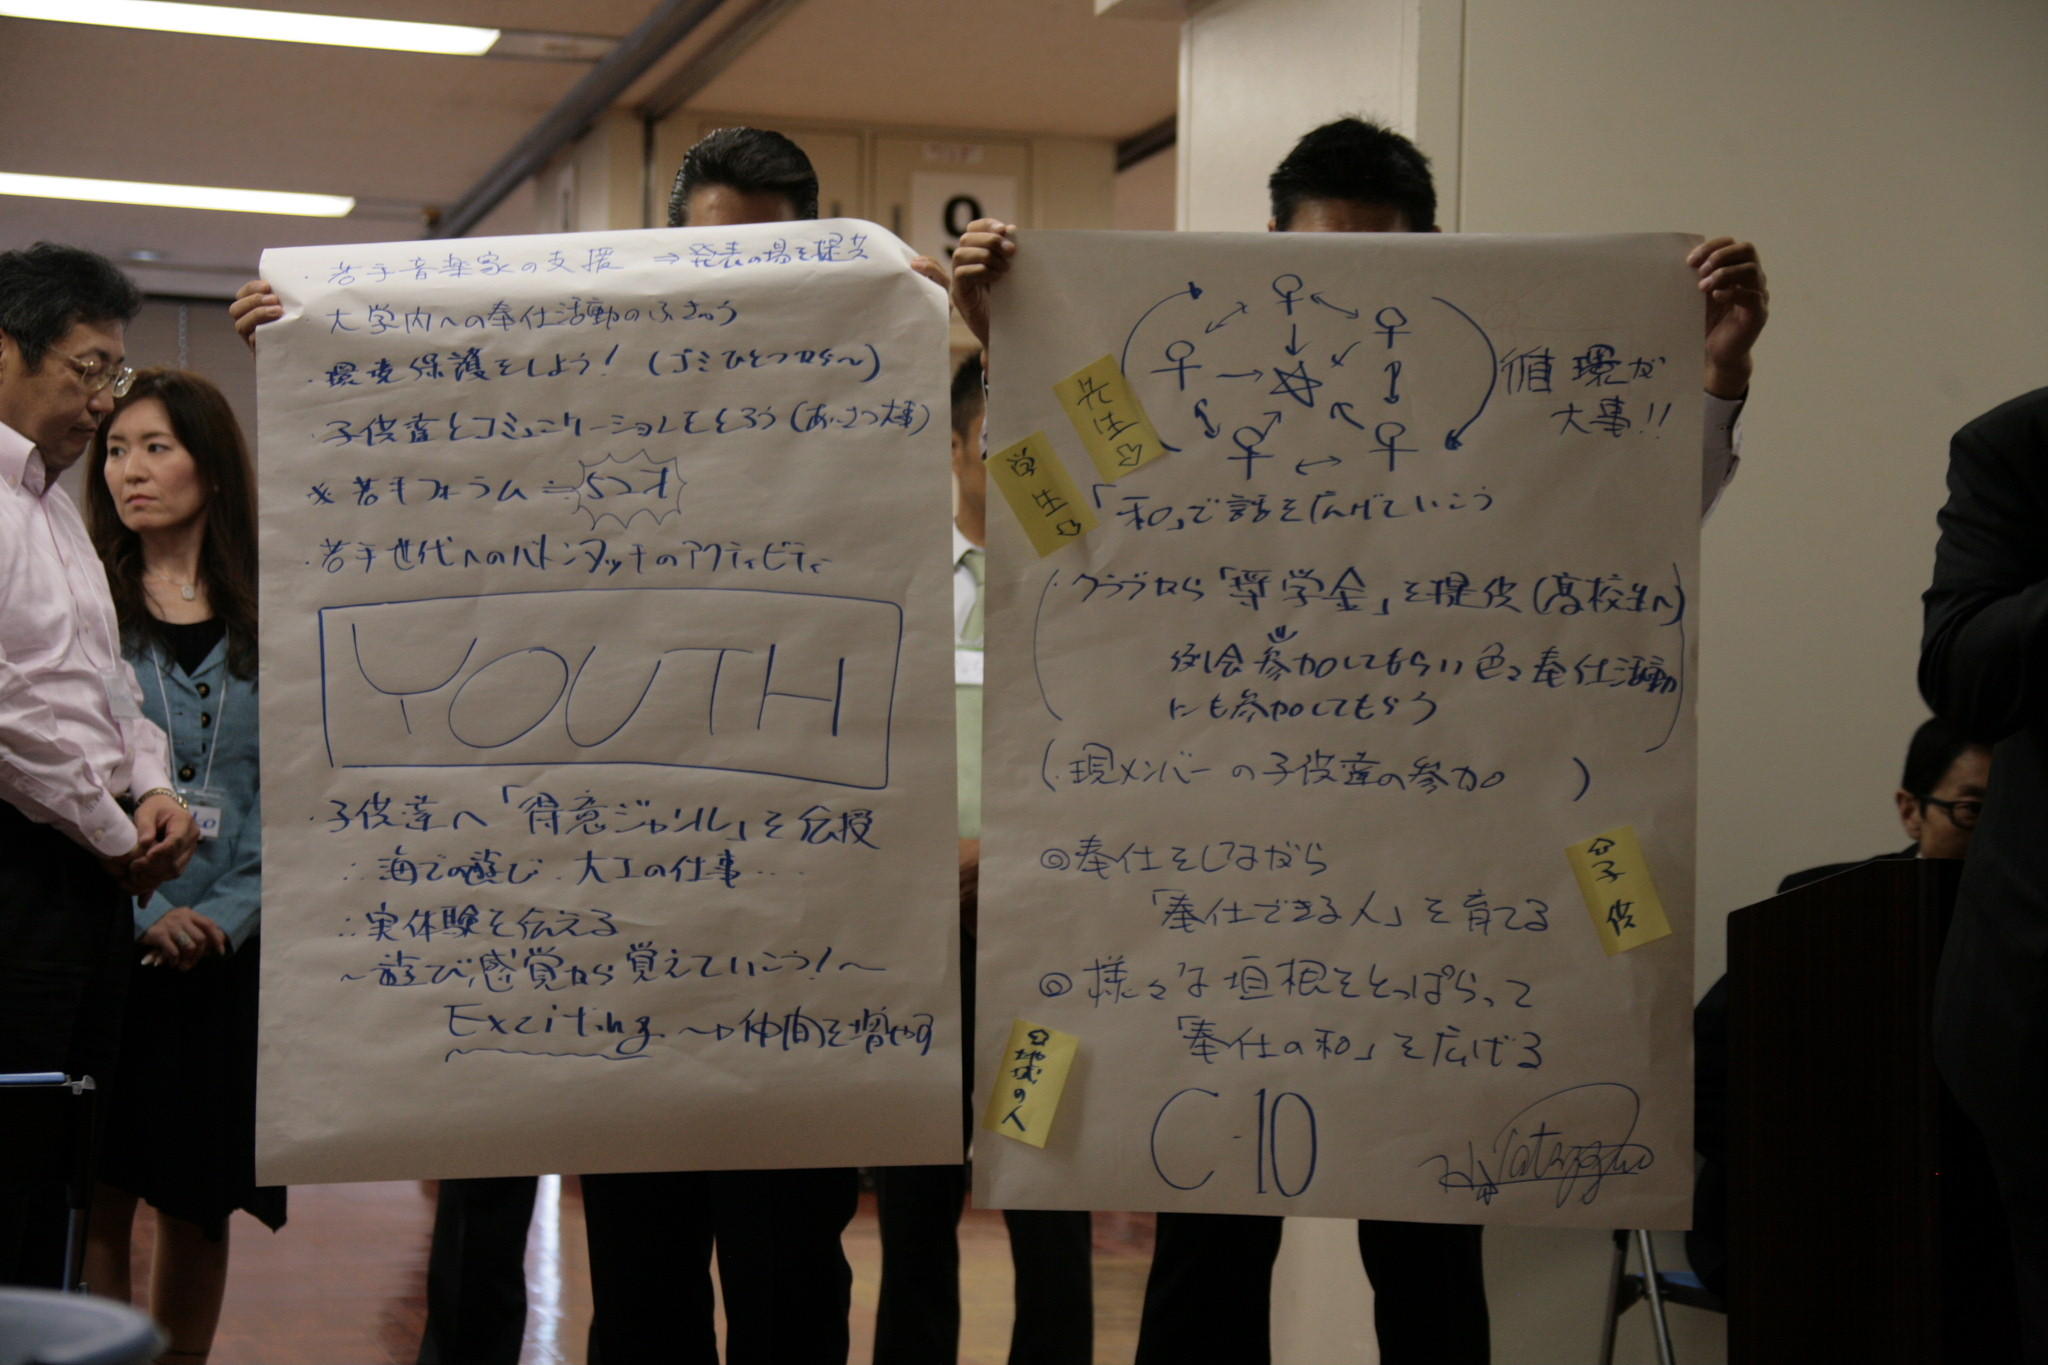 ・若手音楽家の支援 ⇒発表の場を提供
・大学内への奉仕活動のふきゅう
・環境保護をしよう! (ゴミひとつから〜)
・子供達とコミュニケーションをとろう(あいさつ大事)
※若手フォーラム≒52才
・若手世代へのバトンタッチのアクティビティ
YOUTH
・子供達へ「得意ジャンル」を伝授
∴海での遊び、大工の仕事…
∴実体験を伝える
〜遊び感覚から覚えていこう!〜
Exciting 〜→仲間を増やす
9
循環が
大事!!
先生
学生
「和」で話を広げていこう
(・クラブから「奨学金」を提供(高校生へ)
例会参加してもらい色々奉仕活動
にも参加してもらう)
(・現メンバーの子供達の参加)
◎奉仕をしながら
「奉仕できる人」を育てる
子供
◎様々な垣根をとっぱらって
「奉仕の和」を広げる
地域の人
C-10